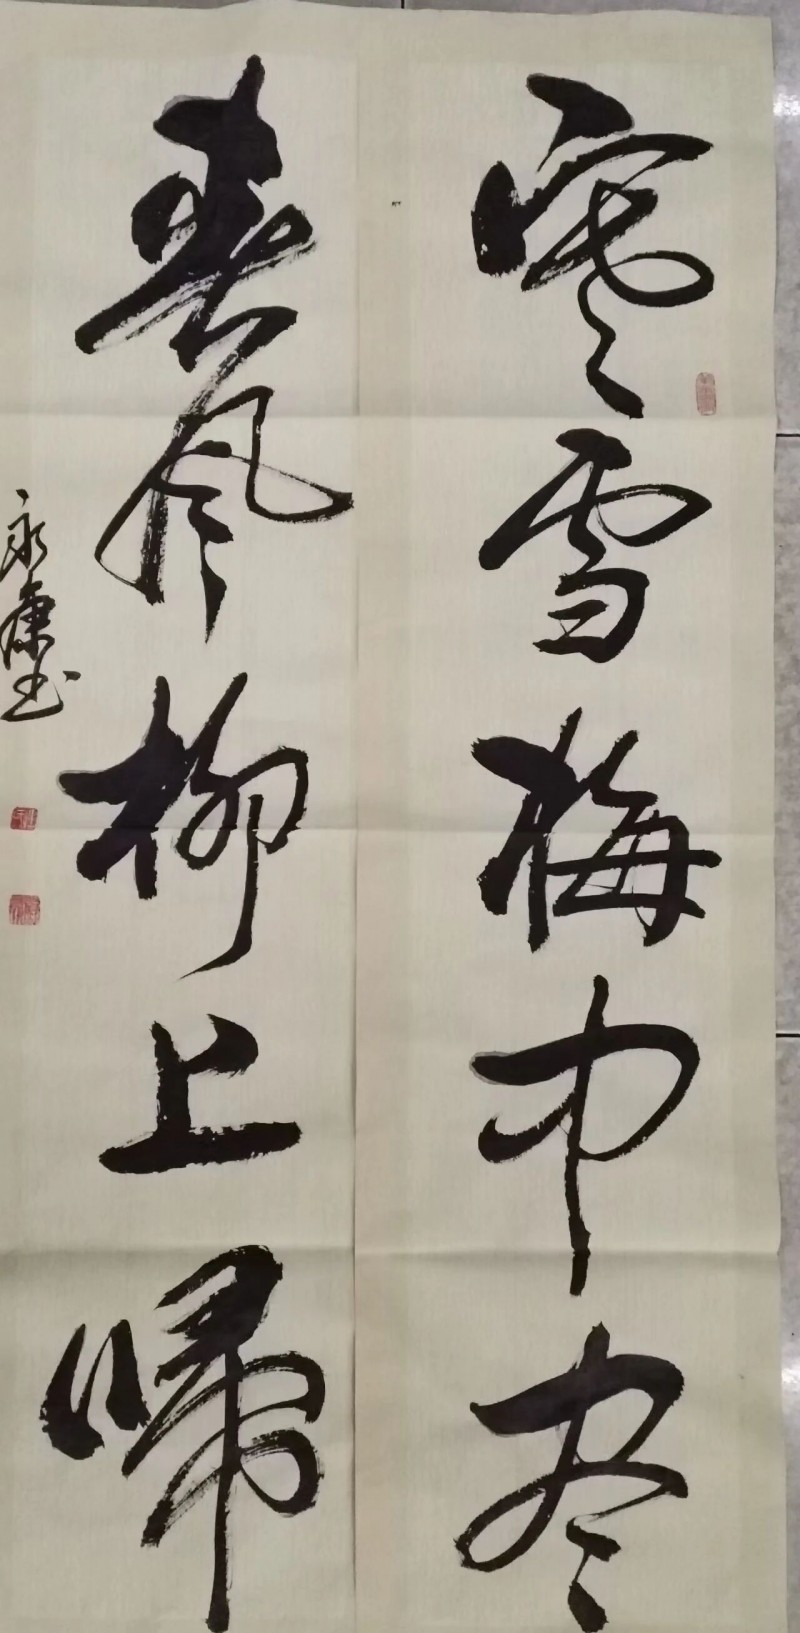 寒雪梅中尽
春风柳上歸
永康书